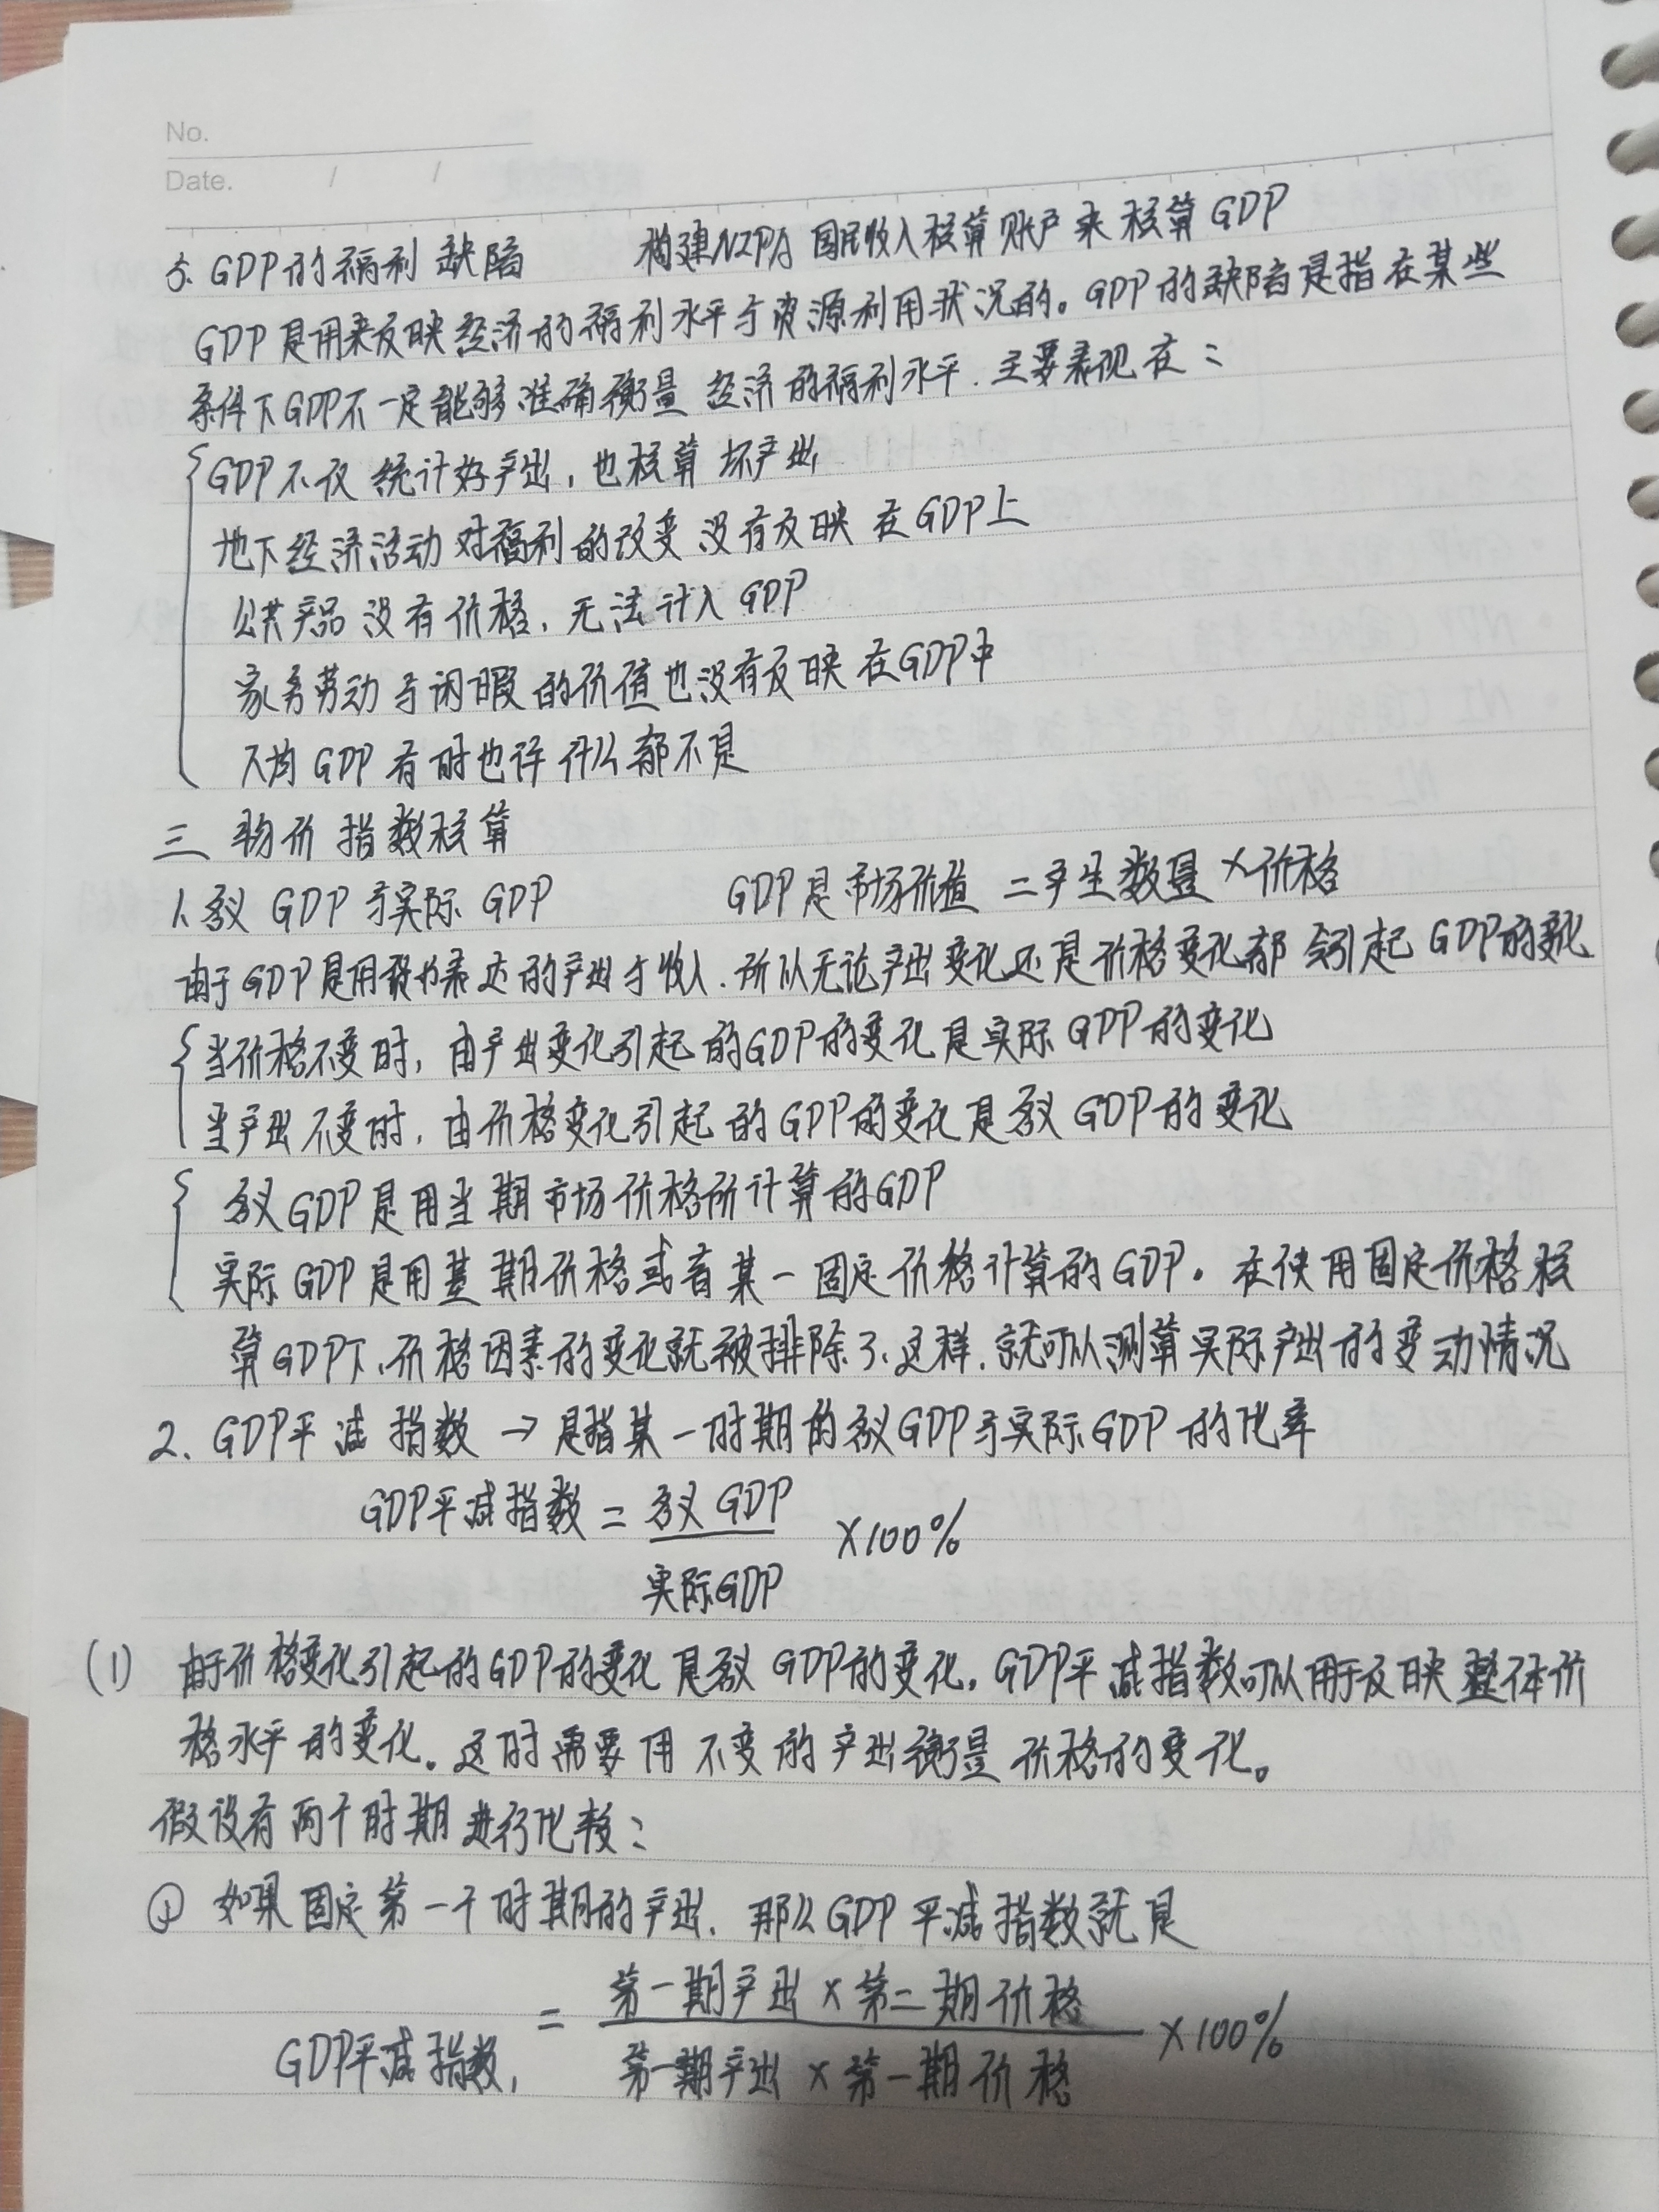 No.
Date. / /
5. GDP的福利缺陷 构建NIPA国民收入核算账户来核算GDP
GDP是用来反映经济的福利水平与资源利用状况的。GDP的缺陷是指在某些
条件下GDP不一定能够准确衡量经济的福利水平.主要表现在:
GDP不仅统计好产出,也核算坏产出
地下经济活动对福利的改变没有反映在GDP上
公共产品没有价格,无法计入GDP
家务劳动与闲暇的价值也没有反映在GDP中
人均GDP有时也许什么都不是
三 物价指数核算
1.名义GDP与实际GDP GDP是市场价值=产生数量×价格
由于GDP是用货币表达的产出与收入.所以无论产出变化还是价格变化都会引起GDP的变化
当价格不变时,由产出变化引起的GDP的变化是实际GDP的变化
当产出不变时,由价格变化引起的GDP的变化是名义GDP的变化
名义GDP是用当期市场价格所计算的GDP
实际GDP是用基期价格或者某一固定价格计算的GDP。在使用固定价格核
算GDP下,价格因素的变化就被排除了.这样.就可以测算实际产出的变动情况
2. GDP平减指数→是指某一时期的名义GDP与实际GDP的比率
GDP平减指数=名义GDP ×100%
实际GDP
(1) 由于价格变化引起的GDP的变化是名义GDP的变化。GDP平减指数可以用于反映整体价
格水平的变化。这时需要用不变的产出衡量价格的变化。
假设有两个时期进行比较:
① 如果固定第一个时期的产出.那么GDP平减指数就是
第一期产出×第二期价格
GDP平减指数1 = ×100%
第一期产出×第一期价格